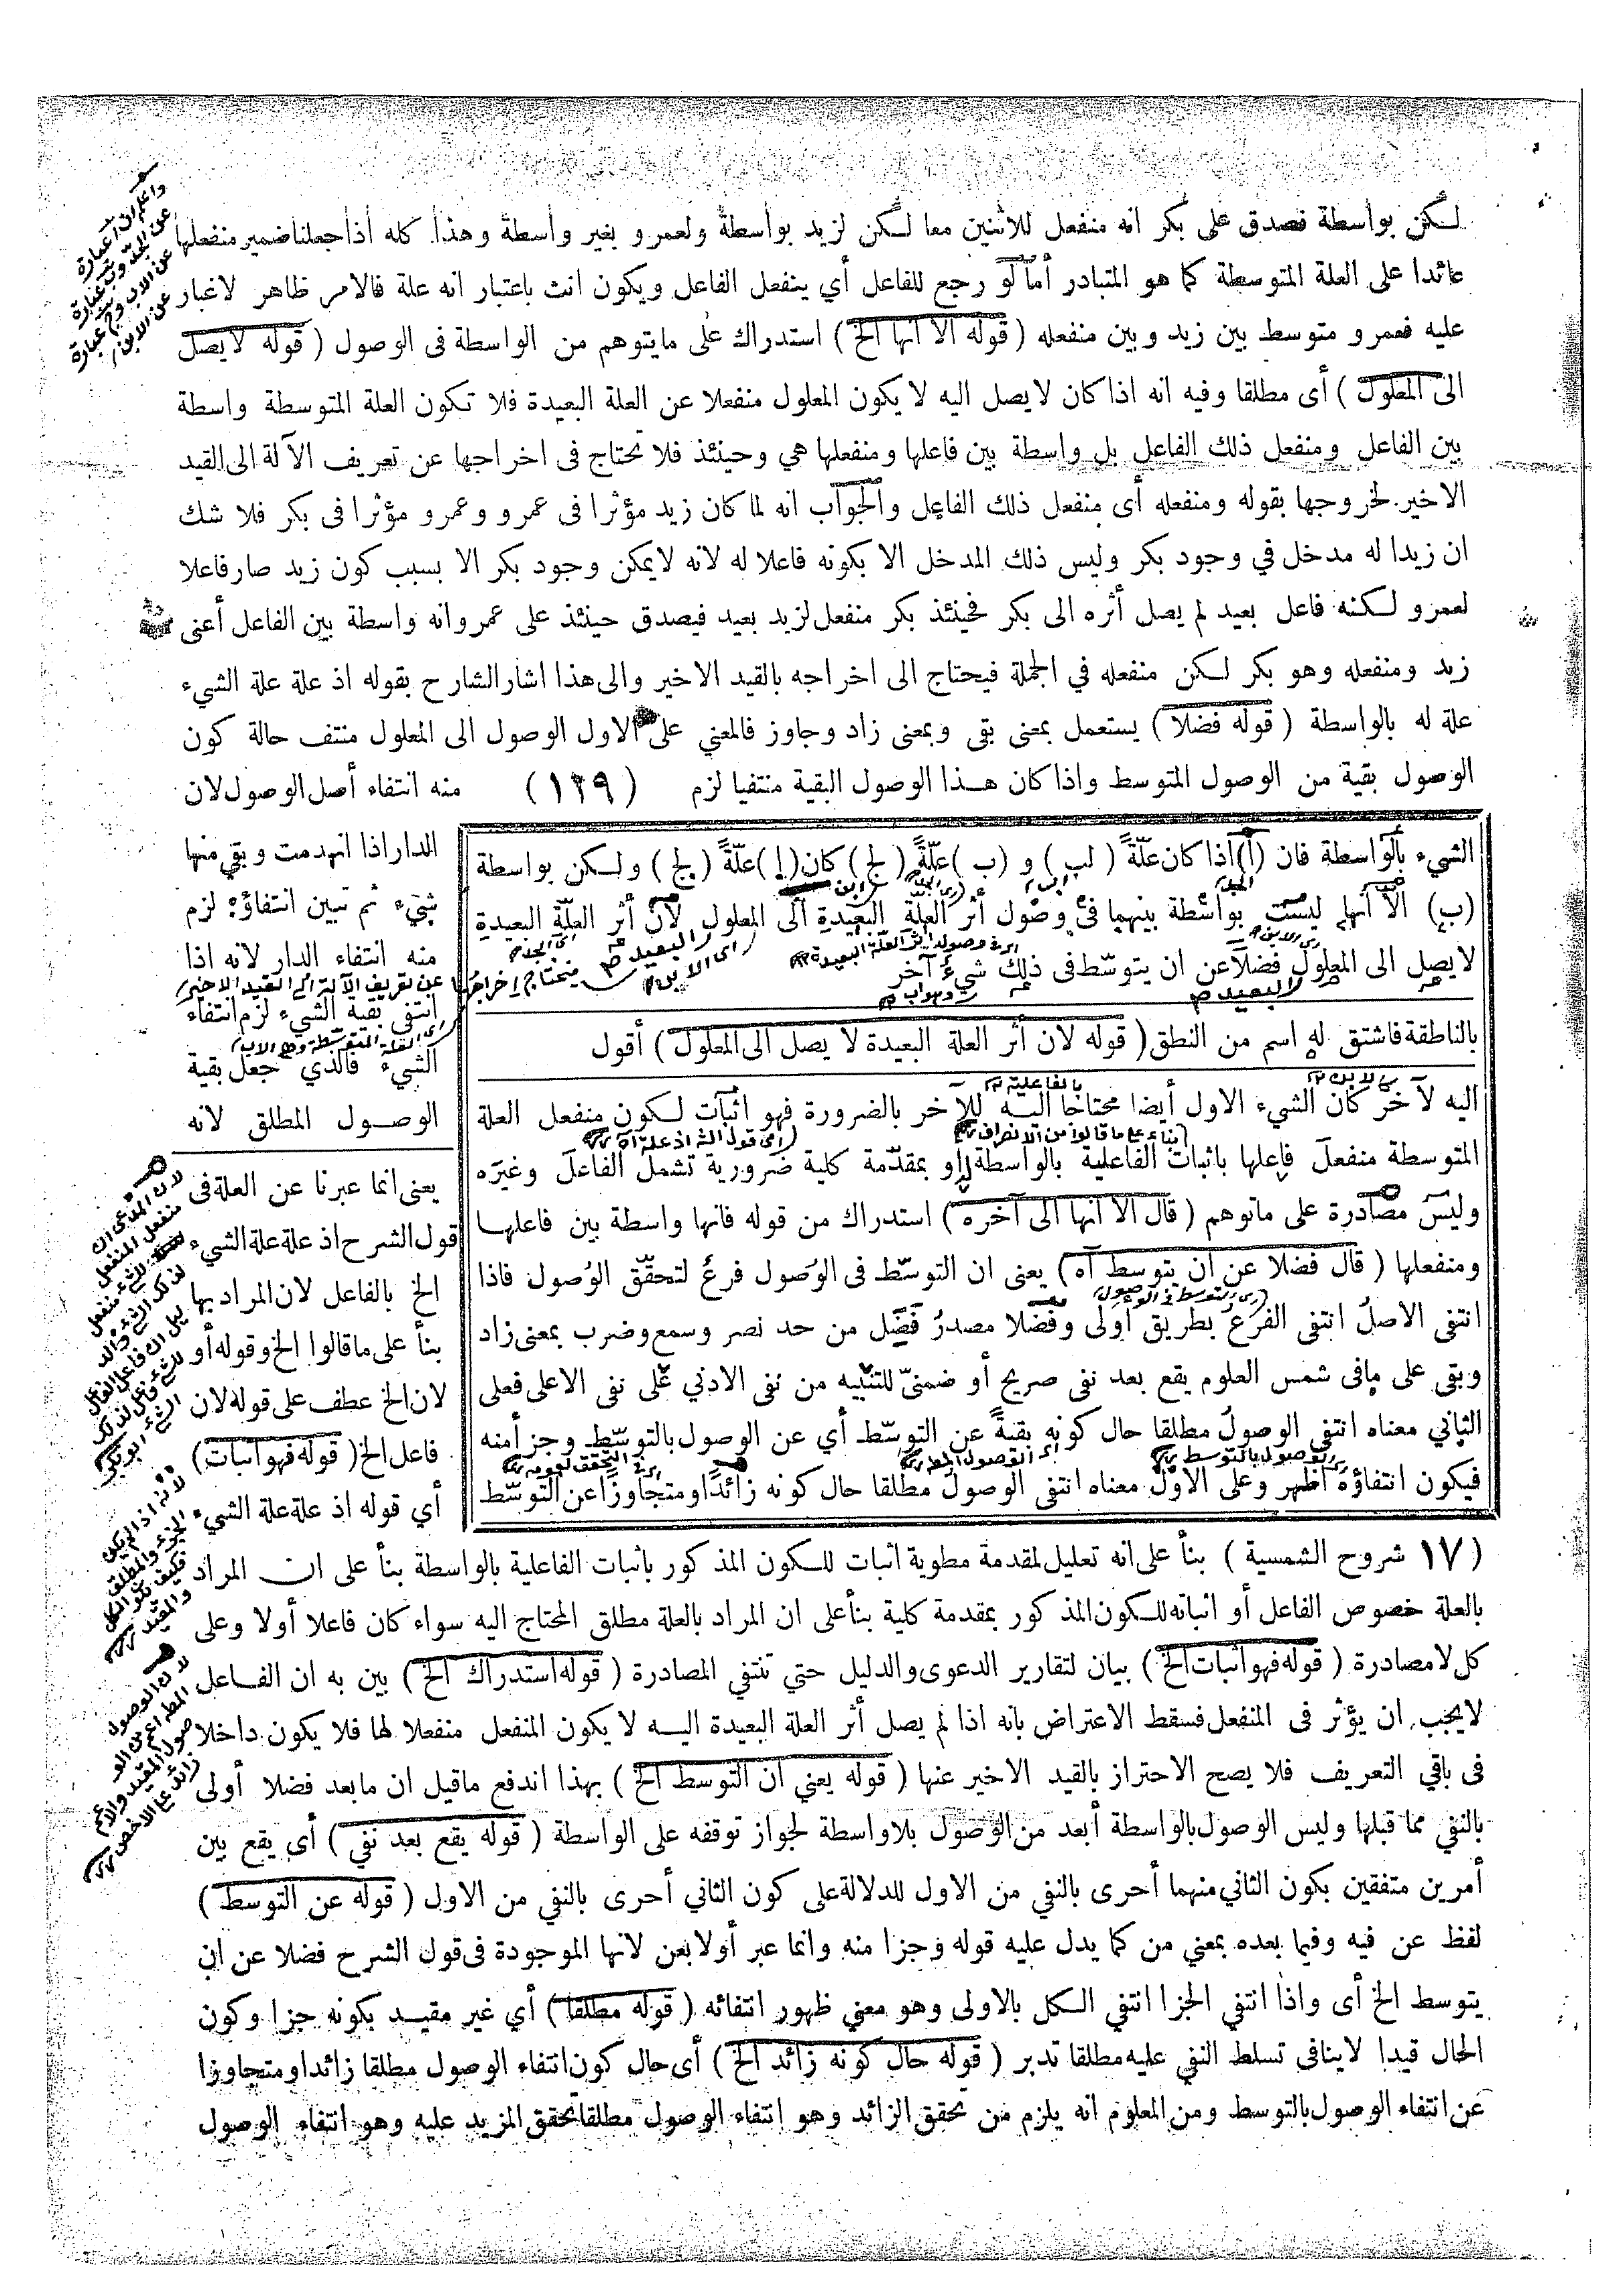 لكن بواسطة فصدق على بكر انه منفعل للاثنين معا لكن لزيد بواسطة ولعمرو بغير واسطة وهذا كله أذا جعلنا ضمير منفعلها
عائدا على العلة المتوسطة كما هو المتبادر أما لو رجع للفاعل أي ينفعل الفاعل ويكون انث باعتبار انه علة فالامر ظاهر لاغبار
عليه فعمرو متوسط بين زيد وبين منفعله (قوله الا انها الخ) استدراك على مايتوهم من الواسطة فى الوصول (قوله لا يصل
الى المعلول) أى مطلقا وفيه انه اذا كان لا يصل اليه لا يكون المعلول منفعلا عن العلة البعيدة فلا تكون العلة المتوسطة واسطة
بين الفاعل ومنفعل ذلك الفاعل بل واسطة بين فاعلها ومنفعلها هي وحينئذ فلا تحتاج فى اخراجها عن تعريف الآلة الى القيد
الاخير لخروجها بقوله ومنفعله أى منفعل ذلك الفاعل والجواب انه لما كان زيد مؤثرا فى عمرو وعمرو مؤثرا فى بكر فلا شك
ان زيدا له مدخل في وجود بكر وليس ذلك المدخل الا بكونه فاعلا له لانه لايمكن وجود بكر الا بسبب كون زيد صار فاعلا
لعمرو لكنه فاعل بعيد لم يصل أثره الى بكر فحينئذ بكر منفعل لزيد بعيد فيصدق حينئذ على عمرو انه واسطة بين الفاعل أعنى
زيد ومنفعله وهو بكر لكن منفعله في الجملة فيحتاج الى اخراجه بالقيد الاخير والى هذا اشار الشارح بقوله اذ علة علة الشيء
علة له بالواسطة (قوله فضلا) يستعمل بمعنى بقى وبمعنى زاد وجاوز فالمعني على الاول الوصول الى المعلول منتف حالة كون
الوصول بقية من الوصول المتوسط واذا كان هذا الوصول البقية منتفيا لزم (١٢٩) منه انتفاء أصل الوصول لان
الدار اذا انهدمت وبقي منها
شيء ثم تبين انتفاؤه لزم
منه انتفاء الدار لانه اذا
انتفى بقية الشيء لزم انتفاء
الشيء فالذي جعل بقية
الوصول المطلق لانه
الشيء بالواسطة فان (أ) اذا كان علّةً (لب) و (ب) علّةً (لج) كان (ا) علّةً (لج) ولكن بواسطة
(ب) الّا أنها ليست بواسطة بينهما فى وصول أثر العلة البعيدة الى المعلول لأنّ أثر العلّة البعيدة
لا يصل الى المعلول فضلاً عن ان يتوسّط فى ذلك شيءٌ آخر
بالناطقة فاشتق له اسم من النطق (قوله لان أثر العلة البعيدة لا يصل الى المعلول) أقول
اليه لآخر كان الشيء الاول أيضا محتاجا اليه للآخر بالضرورة فهو اثبات لكون منفعل العلة
المتوسطة منفعل فاعلها باثبات الفاعلية بالواسطة او بمقدّمة كلية ضرورية تشمل الفاعل وغيره
وليس مصادرة على ماتوهم (قال الا انها الى آخره) استدراك من قوله فانها واسطة بين فاعلها
ومنفعلها (قال فضلا عن ان يتوسط آه) يعنى ان التوسّط فى الوصول فرعُ لتحقّق الوصول فاذا
انتفى الاصلُ انتفى الفرع بطريق أولى وفضلا مصدرُ فضل من حد نصر وسمع وضرب بمعنى زاد
وبقى على مافى شمس العلوم يقع بعد نفى صريح أو ضمنىّ للتنبيه من نفى الادني على نفى الاعلى فعلى
الثاني معناه انتفى الوصولُ مطلقا حال كونه بقيةً عن التوسّط أي عن الوصول بالتوسّط وجزأ منه
فيكون انتفاؤه اظهر وعلى الاوّل معناه انتفى الوصول مطلقا حال كونه زائدًا ومتجاوزًا عن التوسّط
يعنى انما عبرنا عن العلة فى
قول الشرح اذ علة علة الشيء
الخ بالفاعل لان المراد بها
بنأ على ما قالوا الخ وقوله أو
لان الخ عطف على قوله لان
فاعل الخ (قوله فهو اثبات)
أي قوله اذ علة علة الشيء
(١٧ شروح الشمسية) بنأ على انه تعليل لمقدمة مطوية اثبات للكون المذكور باثبات الفاعلية بالواسطة بنأ على ان المراد
بالعلة خصوص الفاعل أو اثباته للكون المذكور بمقدمة كلية بنأ على ان المراد بالعلة مطلق المحتاج اليه سواء كان فاعلا أولا وعلى
كل لا مصادرة (قوله فهو اثبات الخ) بيان لتقارير الدعوى والدليل حتي تنتفي المصادرة (قوله استدراك الخ) بين به ان الفاعل
لايجب ان يؤثر فى المنفعل فسقط الاعتراض بانه اذا لم يصل أثر العلة البعيدة اليه لا يكون المنفعل منفعلا لها فلا يكون داخلا
فى باقي التعريف فلا يصح الاحتراز بالقيد الاخير عنها (قوله يعني ان التوسط الخ) بهذا اندفع ماقيل ان مابعد فضلا أولى
بالنفي مما قبلها وليس الوصول بالواسطة أبعد من الوصول بلا واسطة لجواز توقفه على الواسطة (قوله يقع بعد نفي) أى يقع بين
أمرين متفقين بكون الثاني منهما أحرى بالنفي من الاول للدلالة على كون الثاني أحرى بالنفي من الاول (قوله عن التوسط)
لفظ عن فيه وفيما بعده بمعني من كما يدل عليه قوله وجزا منه وانما عبر أولا بعن لانها الموجودة فى قول الشرح فضلا عن ان
يتوسط الخ أى واذا انتفي الجزا انتفي الكل بالاولى وهو معني ظهور انتفائه (قوله مطلقا) أي غير مقيد بكونه جزا وكون
الحال قيدا لاينافى تسلط النفي عليه مطلقا تدبر (قوله حال كونه زائد الخ) أى حال كون انتفاء الوصول مطلقا زائدا ومتجاوزا
عن انتفاء الوصول بالتوسط ومن المعلوم انه يلزم من تحقق الزائد وهو انتفاء الوصول مطلقا تحقق المزيد عليه وهو انتفاء الوصول